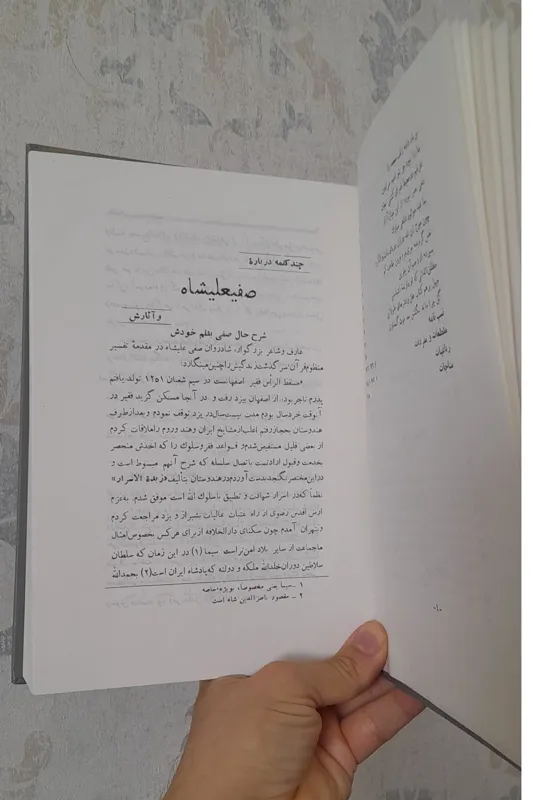 چند کلمه دربارهٔ
صفیعلیشاه
و آثارش
شرح حال صفی بقلم خودش
عارف و شاعر بزرگوار، شادروان صفی علیشاه در مقدمهٔ تفسیر
منظوم قرآن سرگذشت زندگیش را چنین مینگارد:
«مسقط الرأس فقیر اصفهانست در سیم شعبان ۱۲۵۱ تولد یافتم
پدرم تاجر بود، از اصفهان بیزد رفت و در آنجا مسکن گزید فقیر در
آنوقت خردسال بودم مدت بیست سال در یزد توقف نمودم و بعد از طرف
هندوستان بحجاز رفتم اغلب از مشایخ ایران و هند و روم را ملاقات کردم
از بعضی قلیل مستفیض شدم و قواعد فقر و سلوک را که اخذش منحصر
بخدمت و قبول ارادتست باتصال سلسله که شرح آنهم مبسوط است و
در این مختصر نگنجد بدست آوردم در هندوستان بتألیف «زبدة الاسرار»
نظماً که در اسرار شهادت و تطبیق باسلوک الله است موفق شدم. بعزم
ارض اقدس رضوی از راه عتبات عالیات بشیراز و یزد مراجعت کردم
و بتهران آمدم چون سکنای دارالخلافه از برای هر کس بخصوص امثال
ما جماعت از سایر بلاد امن‌تر است سیما (۱) در این زمان که سلطان
سلاطین دوران خلدالله ملکه و دولته که پادشاه ایران است (۲) بحمدالله
۱ ـ سیما یعنی مخصوصاً، بویژه، خاصه
۲ ـ مقصود ناصرالدین شاه است
نسب نامه
مقطعات و مفردات
رباعیات
مناجات